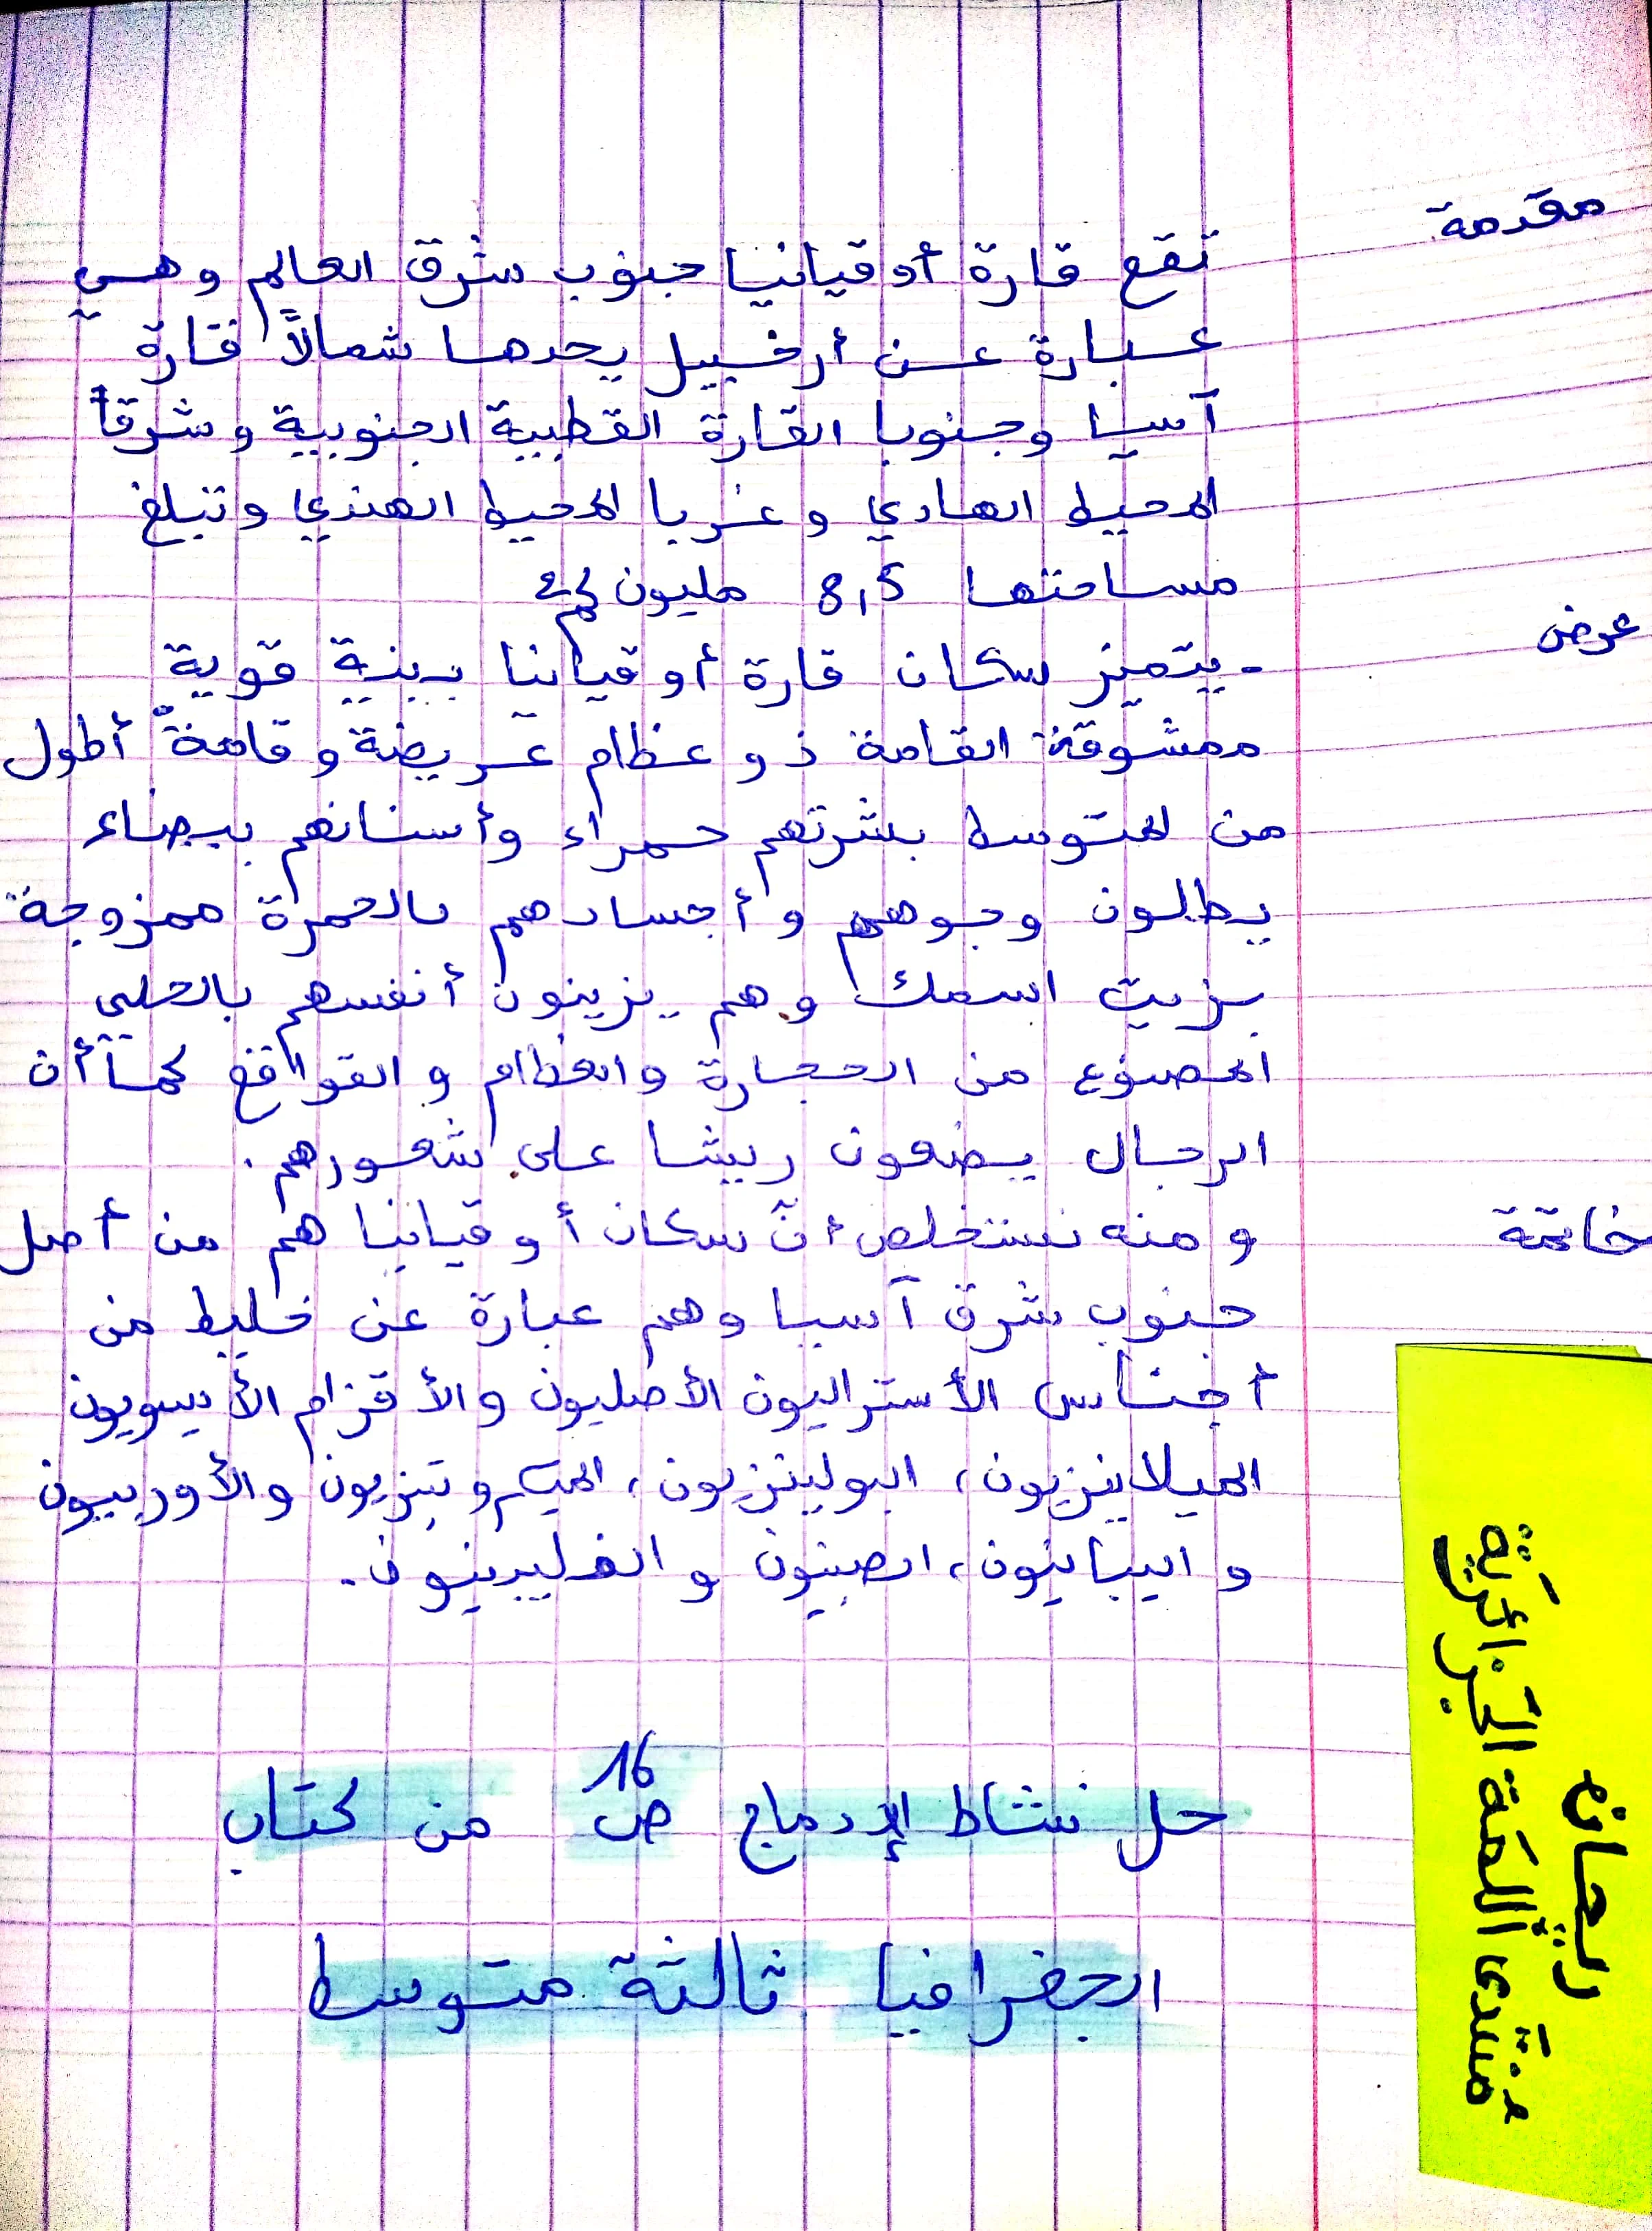 مقدمة
تقع قارة أوقيانيا جنوب شرق العالم وهي
عبارة عن أرخبيل يحدها شمالاً قارة
آسيا وجنوبا القارة القطبية الجنوبية وشرقاً
المحيط الهادي وغربا المحيط الهندي وتبلغ
مساحتها 8,5 مليون كم2
عرض
- يتميز سكان قارة أوقيانيا ببنية قوية
ممشوقة القامة ذو عظام عريضة وقامة أطول
من المتوسط بشرتهم حمراء وأسنانهم بيضاء
يطلون وجوههم وأجسادهم بالحمرة ممزوجة
بزيت اسمك وهم يزينون أنفسهم بالحلي
المصنوع من الحجارة والعظام والقواقع كما أن
الرجال يضعون ريشا على شعورهم.
خاتمة
ومنه نستخلص أنّ سكان أوقيانيا هم من أصل
جنوب شرق آسيا وهم عبارة عن خليط من
أجناس الأستراليون الأصليون والأقزام الأسيويون
الميلانيزيون، البولينزيون، الميكرونيزيون والأوربيون
واليبانيون، الصينيون والفليبينيون.
حل نشاط الإدماج ص 16 من كتاب
الجغرافيا ثالثة متوسط
ريحانة
منتدى اللمة الجزائرية